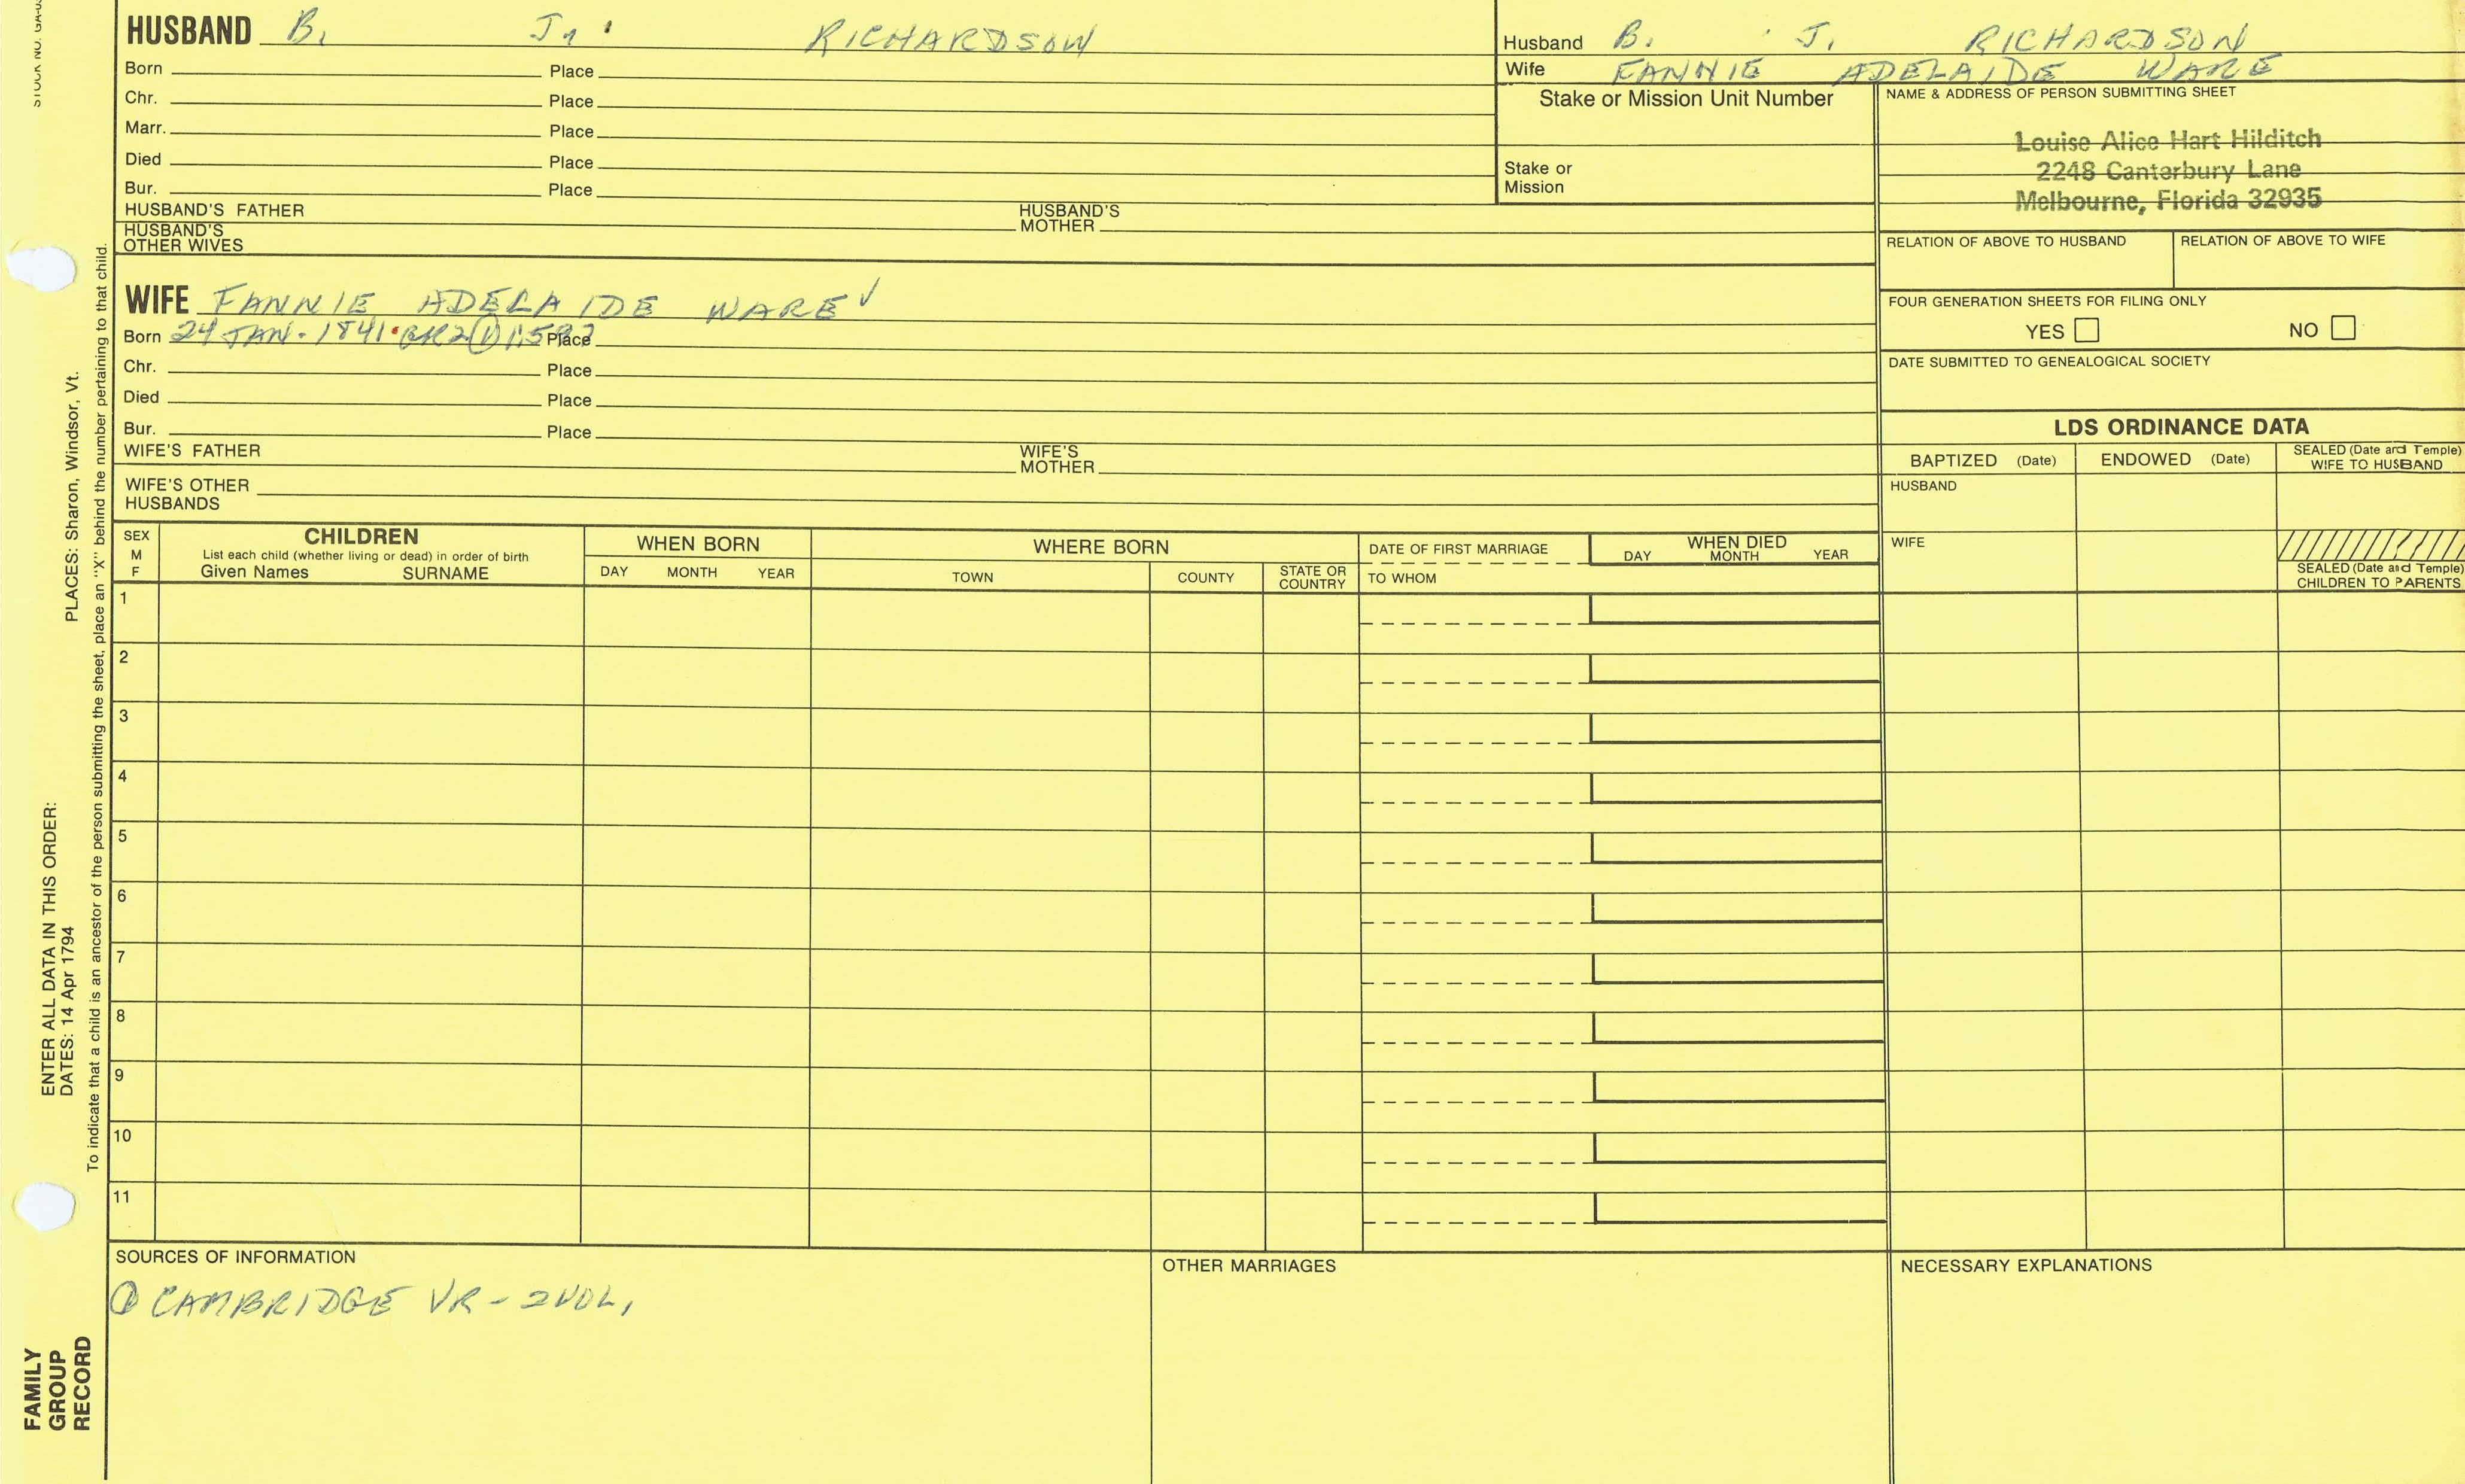 HUSBAND B. J. RICHARDSON
Born Place
Chr. Place
Marr. Place
Died Place
Bur. Place
HUSBAND'S FATHER HUSBAND'S MOTHER
HUSBAND'S OTHER WIVES
WIFE FANNIE ADELAIDE WARE ✓
Born 24 JAN. 1841 Place
Chr. Place
Died Place
Bur. Place
WIFE'S FATHER WIFE'S MOTHER
WIFE'S OTHER HUSBANDS
Husband B. J. RICHARDSON
Wife FANNIE ADELAIDE WARE
Stake or Mission Unit Number
Stake or Mission
NAME & ADDRESS OF PERSON SUBMITTING SHEET
Louise Alice Hart Hilditch
2248 Canterbury Lane
Melbourne, Florida 32935
RELATION OF ABOVE TO HUSBAND RELATION OF ABOVE TO WIFE
FOUR GENERATION SHEETS FOR FILING ONLY
YES NO
DATE SUBMITTED TO GENEALOGICAL SOCIETY
LDS ORDINANCE DATA
BAPTIZED (Date) ENDOWED (Date) SEALED (Date and Temple) WIFE TO HUSBAND
HUSBAND
WIFE
SEALED (Date and Temple) CHILDREN TO PARENTS
SEX M F
CHILDREN
List each child (whether living or dead) in order of birth
Given Names SURNAME
WHEN BORN
DAY MONTH YEAR
WHERE BORN
TOWN COUNTY STATE OR COUNTRY
DATE OF FIRST MARRIAGE
TO WHOM
WHEN DIED
DAY MONTH YEAR
1
2
3
4
5
6
7
8
9
10
11
SOURCES OF INFORMATION
① CAMBRIDGE VR - 2 VOL.
OTHER MARRIAGES
NECESSARY EXPLANATIONS
STOCK NO.
PLACES: Sharon, Windsor, Vt.
ENTER ALL DATA IN THIS ORDER:
DATES: 14 Apr 1794
To indicate that a child is an ancestor of the person submitting the sheet, place an "X" behind the number pertaining to that child.
FAMILY
GROUP
RECORD